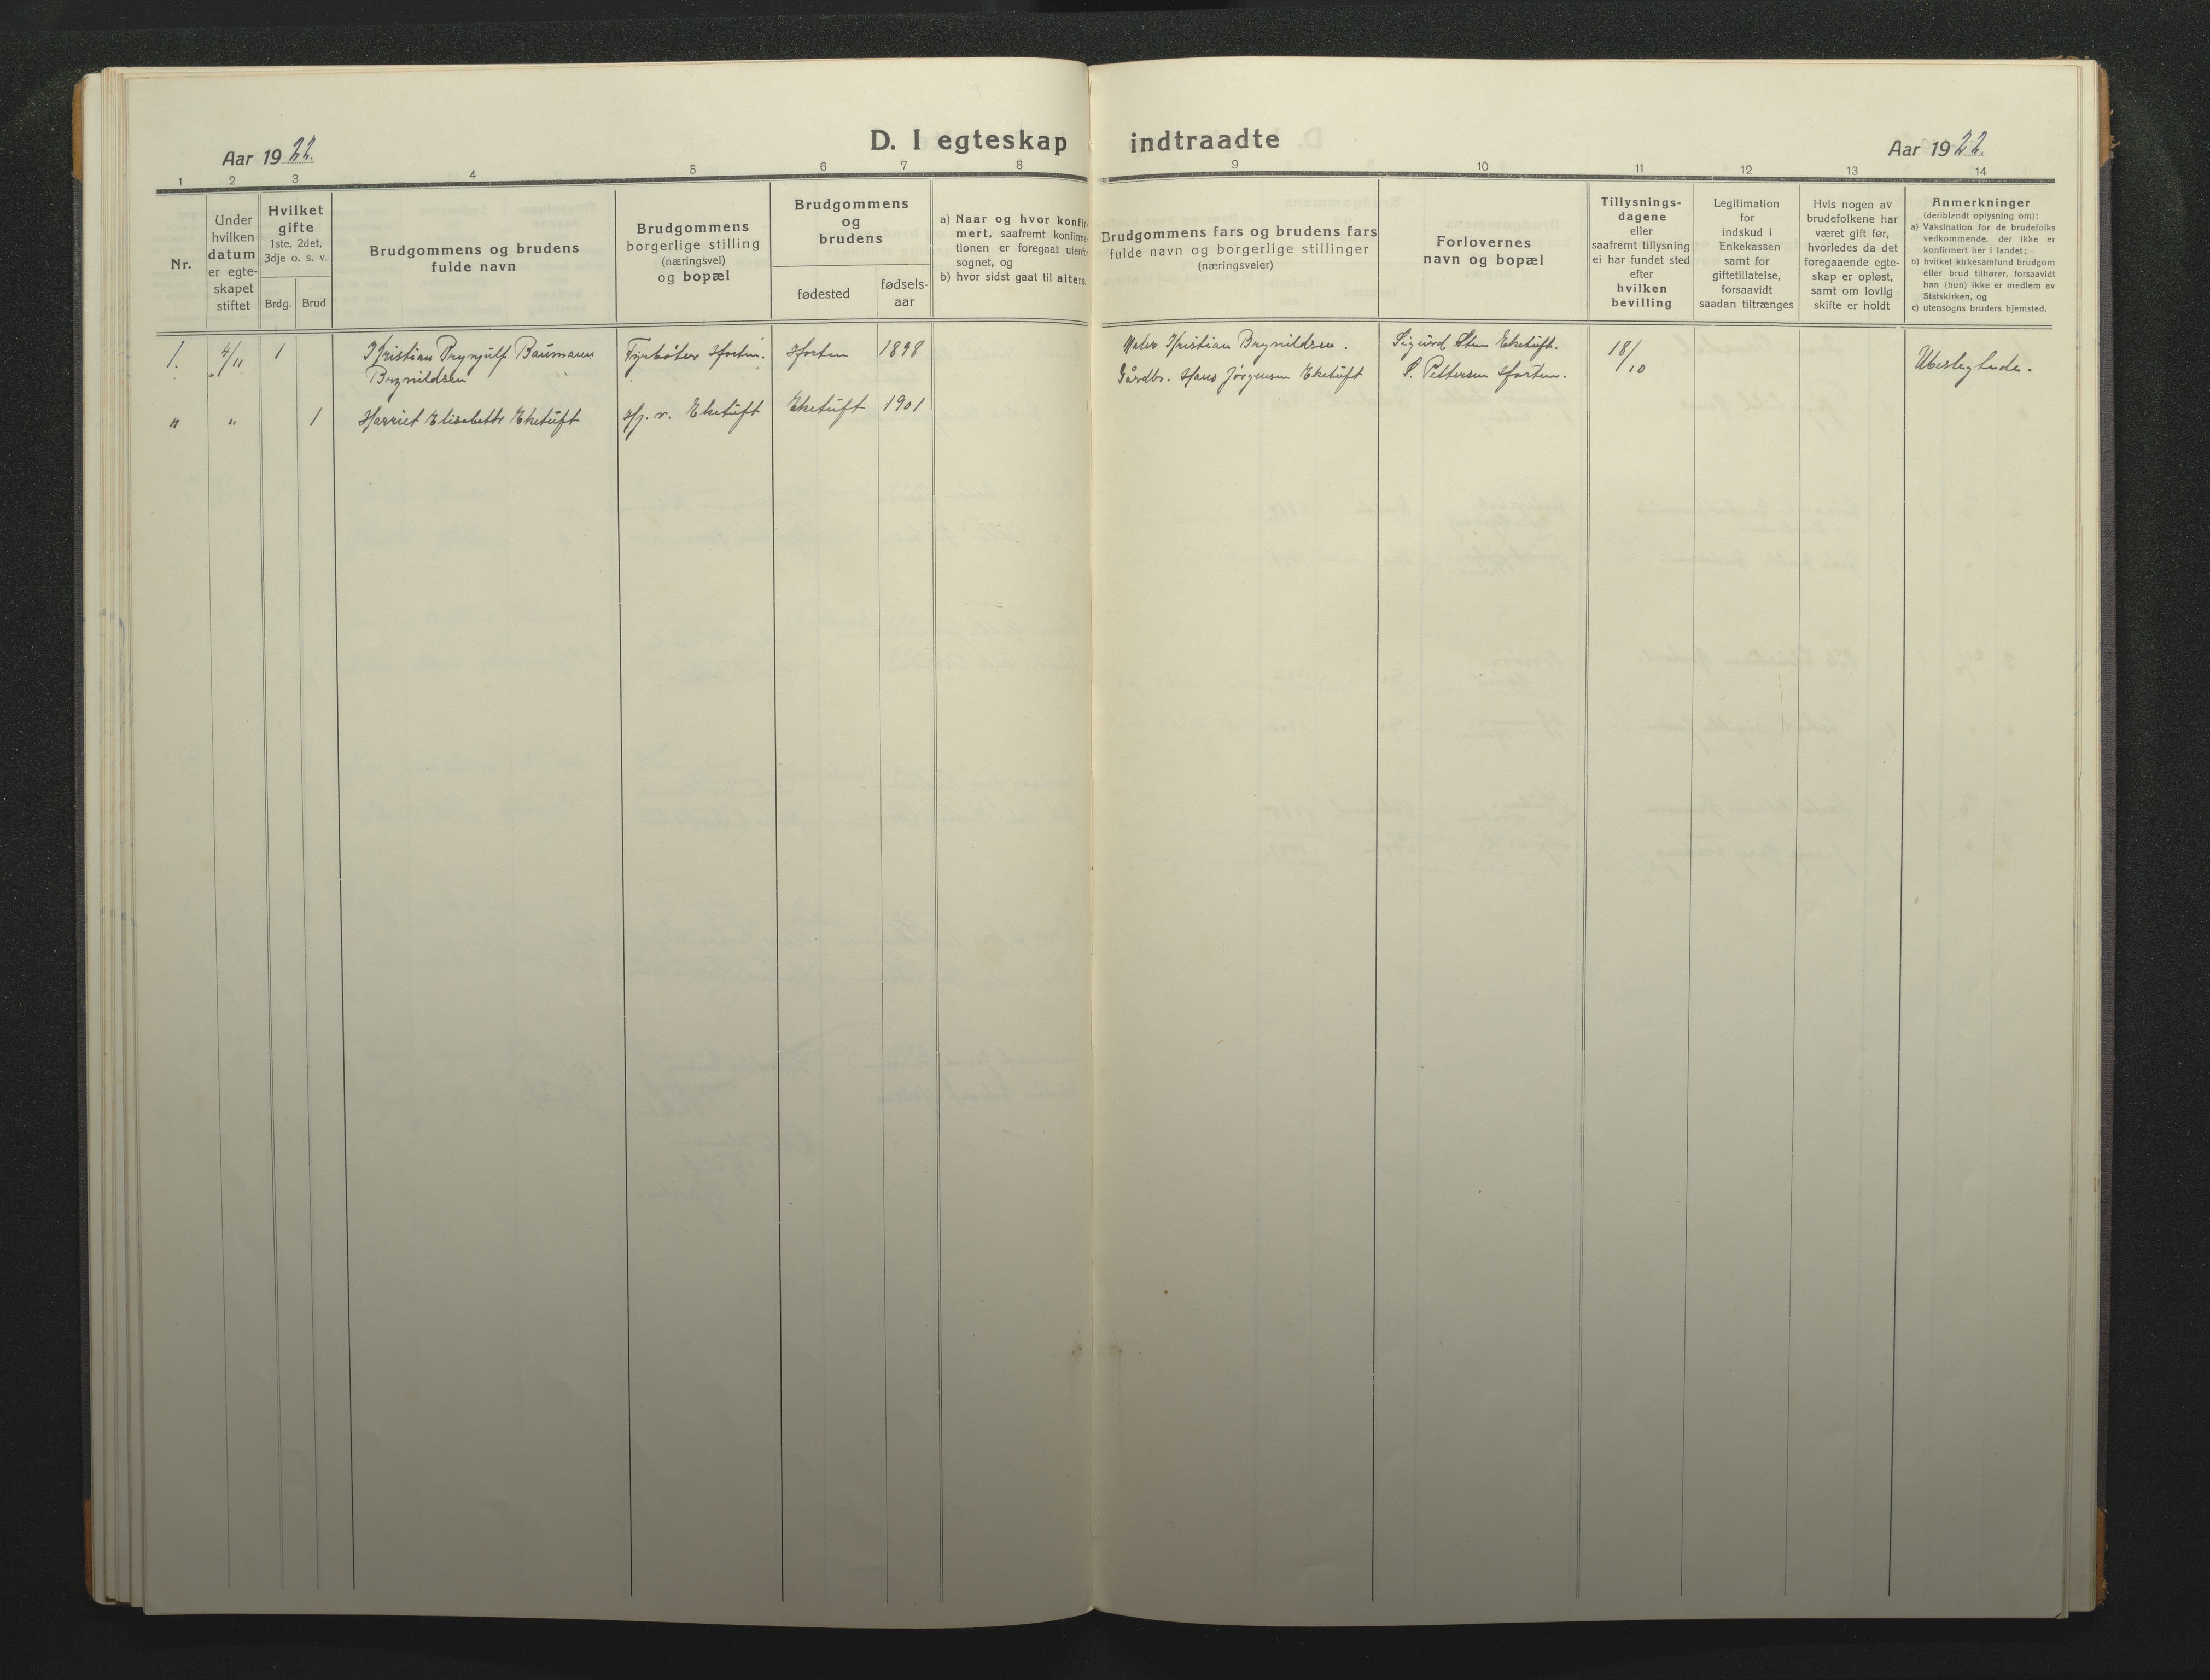 Aar 1922.
D. I egteskap indtraadte
Aar 1922.
1 2 3 4 5 6 7 8 9 10 11 12 13 14
Nr.
Under
hvilken
datum
er egte-
skapet
stiftet
Hvilket
gifte
1ste, 2det,
3dje o. s. v.
Brdg. Brud
Brudgommens og brudens
fulde navn
Brudgommens
borgerlige stilling
(næringsvei)
og bopæl
Brudgommens
og
brudens
fødested
fødsels-
aar
a) Naar og hvor konfir-
mert, saafremt konfirma-
tionen er foregaat utenfor
sognet, og
b) hvor sidst gaat til alters.
Brudgommens fars og brudens fars
fulde navn og borgerlige stillinger
(næringsveier)
Forlovernes
navn og bopæl
Tillysnings-
dagene
eller
saafremt tillysning
ei har fundet sted
efter
hvilken
bevilling
Legitimation
for
indskud i
Enkekassen
samt for
giftetillatelse,
forsaavidt
saadan tiltrænges
Hvis nogen av
brudefolkene har
været gift før,
hvorledes da det
foregaaende egte-
skap er opløst,
samt om lovlig
skifte er holdt
Anmerkninger
(deriblandt oplysning om):
a) Vaksination for de brudefolks
vedkommende, der ikke er
konfirmert her i landet;
b) hvilket kirkesamfund brudgom
eller brud tilhører, forsaavidt
han (hun) ikke er medlem av
Statskirken, og
c) utensogns bruders hjemsted.
1. 4/11 1 Kristian Brynjulf Baumann
Brynildsen
Fyrbøter Horten. Horten 1898
Maler Kristian Brynildsen.
Gårdbr. Hans Jørgensen Eketuft
Sigurd Sten Eketuft.
S. Pettersen Horten.
18/10
Ubeslegtede.
" " 1 Harriet Elisabeth Eketuft Hj. v. Eketuft Eketuft 1901